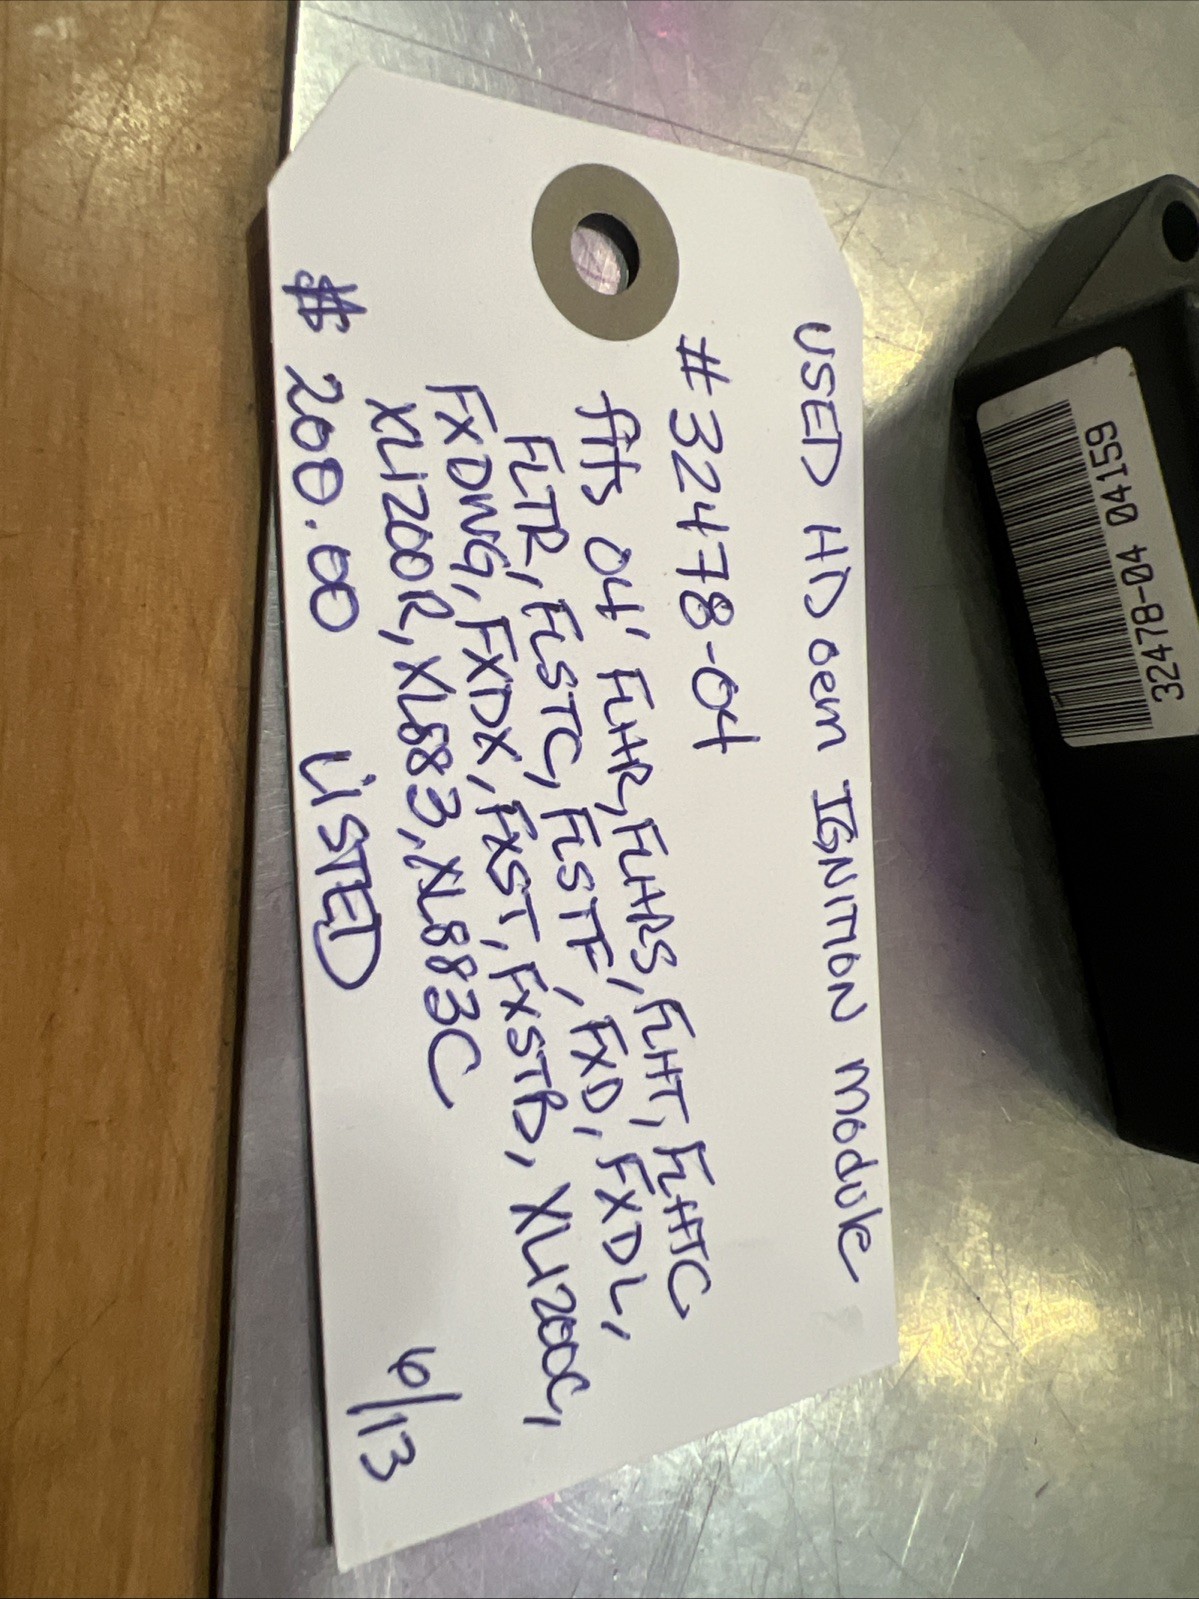 USED HD oem IGNITION module
#32478-04
fits 04' FLHR, FLHRS, FLHT, FLHTC
FLTR, FLSTC, FLSTF, FXD, FXDL,
FXDWG, FXDX, FXST, FXSTB, XL1200C,
XL1200R, XL883, XL883C
$200.00 LISTED
6/13
32478-04 04159